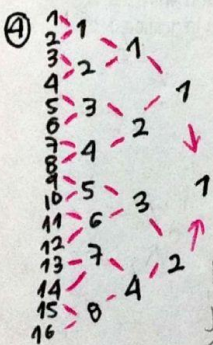 ④
1
2
3
4
5
6
7
8
9
10
11
12
13
14
15
16
1
2
3
4
5
6
7
8
1
2
3
4
1
2
1